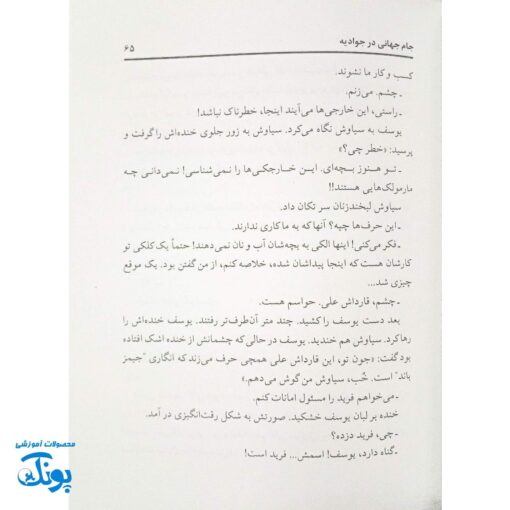 جام جهانی در جوادیه
۶۵
کسب و کار ما نشوند.
ـ چشم. می‌زنم.
ـ راستی، این خارجی‌ها می‌آیند اینجا، خطرناک نباشد!
یوسف به سیاوش نگاه می‌کرد. سیاوش به زور جلوی خنده‌اش را گرفت و
پرسید: «خطر چی؟»
ـ تو هنوز بچه‌ای. این خارجکی‌ها را نمی‌شناسی! نمی‌دانی چه
مارمولک‌هایی هستند!!
سیاوش لبخندزنان سر تکان داد.
ـ این حرف‌ها چیه؟ آنها که به ما کاری ندارند.
ـ فکر می‌کنی! اینها الکی به بچه‌شان آب و نان نمی‌دهند! حتماً یک کلکی تو
کارشان هست که اینجا پیداشان شده، خلاصه کنم، از من گفتن بود. یک موقع
چیزی شد...
ـ چشم، قارداش علی. حواسم هست.
بعد دست یوسف را کشید. چند متر آن‌طرف‌تر رفتند. یوسف خنده‌اش را
رها کرد. سیاوش هم خندید. یوسف در حالی که چشمانش از خنده اشک افتاده
بود گفت: «جون تو، این قارداش علی همچی حرف می‌زند که انگاری "جیمز
باند" است. خُب، سیاوش من گوش می‌دهم.»
ـ می‌خواهم فرید را مسئول امانات کنم.
خنده بر لبان یوسف خشکید. صورتش به شکل رقت‌انگیزی در آمد.
ـ چی، فرید دزده؟
ـ گناه دارد، یوسف! اسمش... فرید است!
محصولات آموزشی
پونک